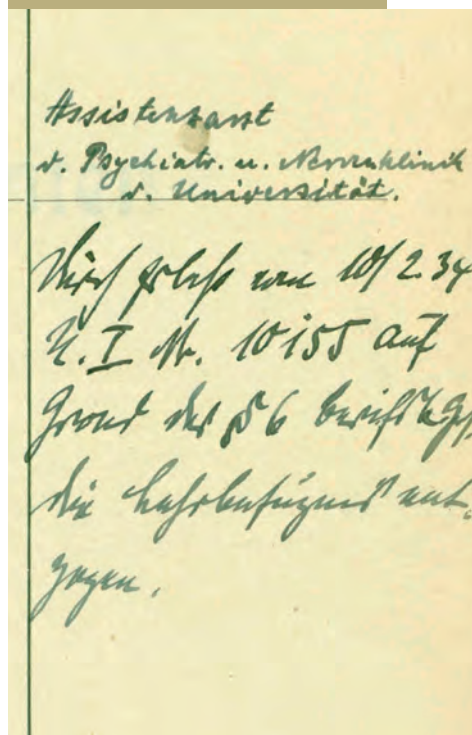 Assistenzarzt
d. Psychiatr. u. Nervenklinik
d. Universität.
Durch Erlaß vom 10/2.34
U.I Nr. 10155 auf
Grund des § 6
die Lehrbefugnis ent-
zogen.